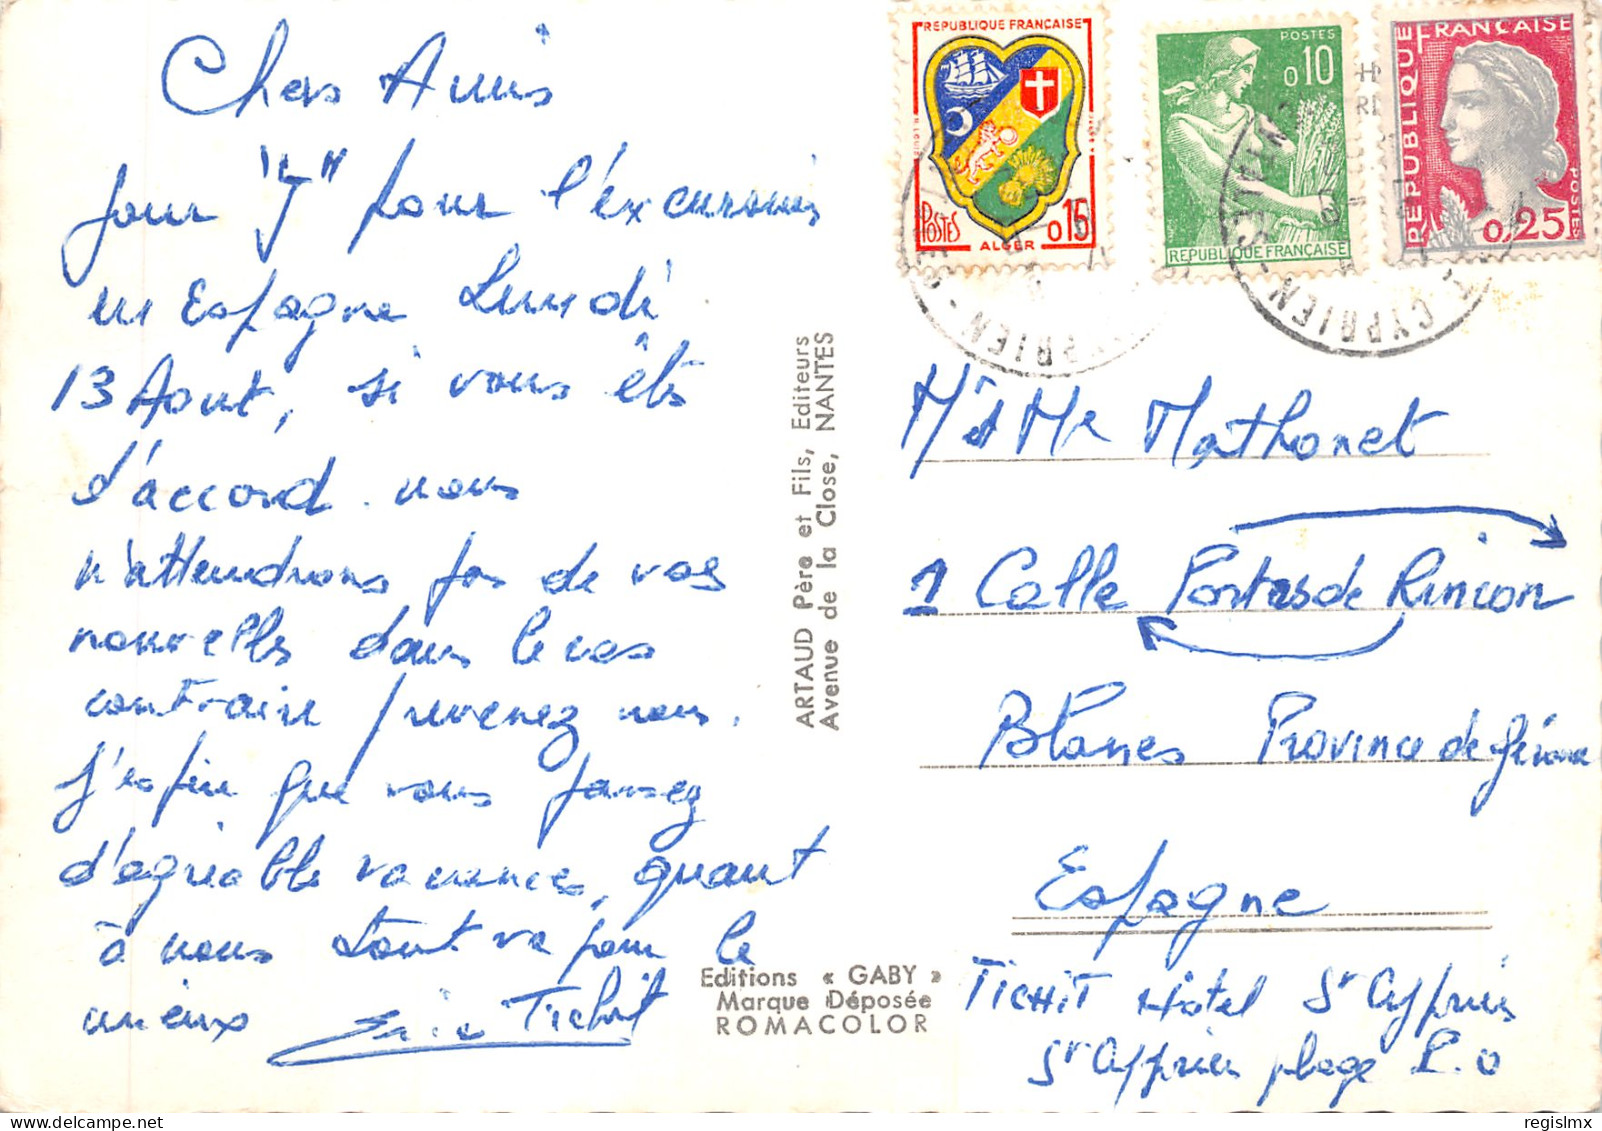 Chers Amis
jour "J" pour l'excursion
en Espagne Lundi
13 Aout, si vous êts
d'accord. nous
n'attendrons pas de vos
nouvelles dans le cas
contraire prevenez nous.
J'espère que vous passez
d'agréable vacances, quant
à nous tout va pour le
mieux Tichit
ARTAUD Père et Fils, Editeurs
Avenue de la Close, NANTES
Editions « GABY »
Marque Déposée
ROMACOLOR
REPUBLIQUE FRANÇAISE
POSTES
ALGER
0,15
POSTES
0,10
REPUBLIQUE FRANÇAISE
REPUBLIQUE FRANÇAISE
POSTES
0,25
CYPRIEN
CYPRIEN
Mr et Me Mathonet
1 Calle Portas de Rincon
Blanes Province de Gérone
Espagne
TICHIT Hôtel St Cyprien
St Cyprien plage P.O
regislmx